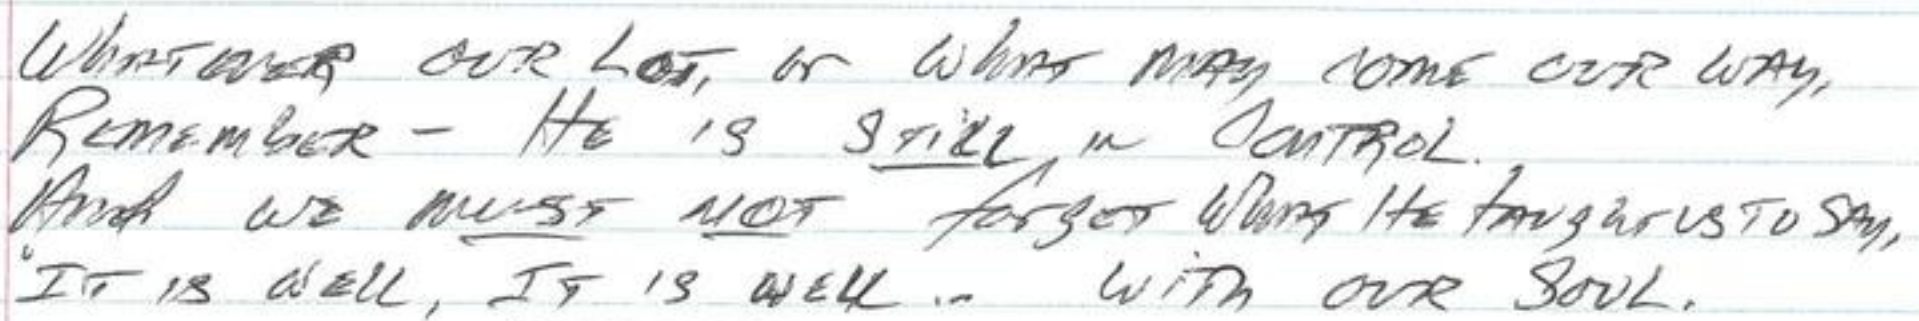 Whatever our Lot, or what may come our way,
Remember - He is still in Control.
And we must not forget what He taught us to say,
"It is well, It is well .. with our Soul.